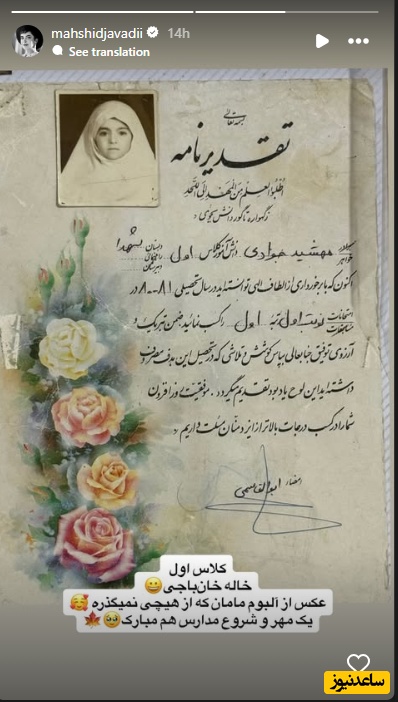 mahshidjavadii 14h
See translation
بسمه تعالی
تقدیرنامه
اُطْلُبُوا الْعِلْمَ مِنَ الْمَهْدِ إِلَى اللَّحْدِ
زگهواره تا گور دانش بجوی
برادر خواهر مهشید جوادی دانش آموز کلاس اول دبستان راهنمائی دبیرستان شهدا
اکنون که با برخورداری از الطاف الهی توانسته اید در سال تحصیلی ۸۱-۸۰ در
امتحانات مسابقات نوبت اول رتبه اول را کسب نمائید ضمن تبریک و
آرزوی توفیق جنابعالی بپاس کوشش و تلاشی که در تحصیل این هدف مصروف
داشته اید این لوح یادبود تقدیم میگردد. موفقیت روز افزون
شما را در کسب درجات بالاتر از ایزد منان مسئلت داریم
امضاء ابوالقاسمی
کلاس اول
خاله خان‌باجی😀
عکس از آلبوم مامان که از هیچی نمیگذره🥰
یک مهر و شروع مدارس هم مبارک🥹🍁
ساعدنیوز